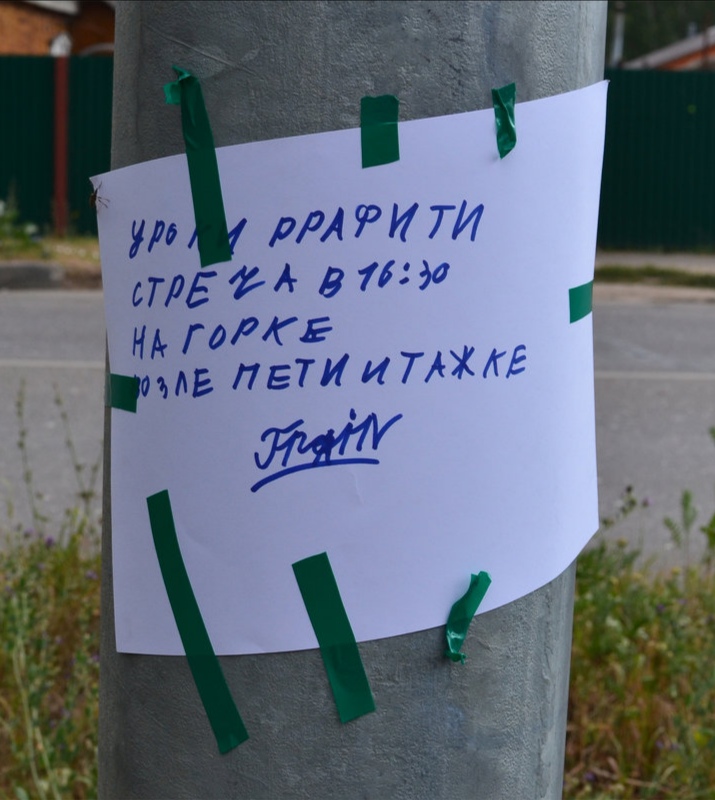 УРОКИ РРАФИТИ
СТРЕЧА В 16:30
НА ГОРКЕ
ВОЗЛЕ ПЕТИ ИТАЖКЕ
TRAiN